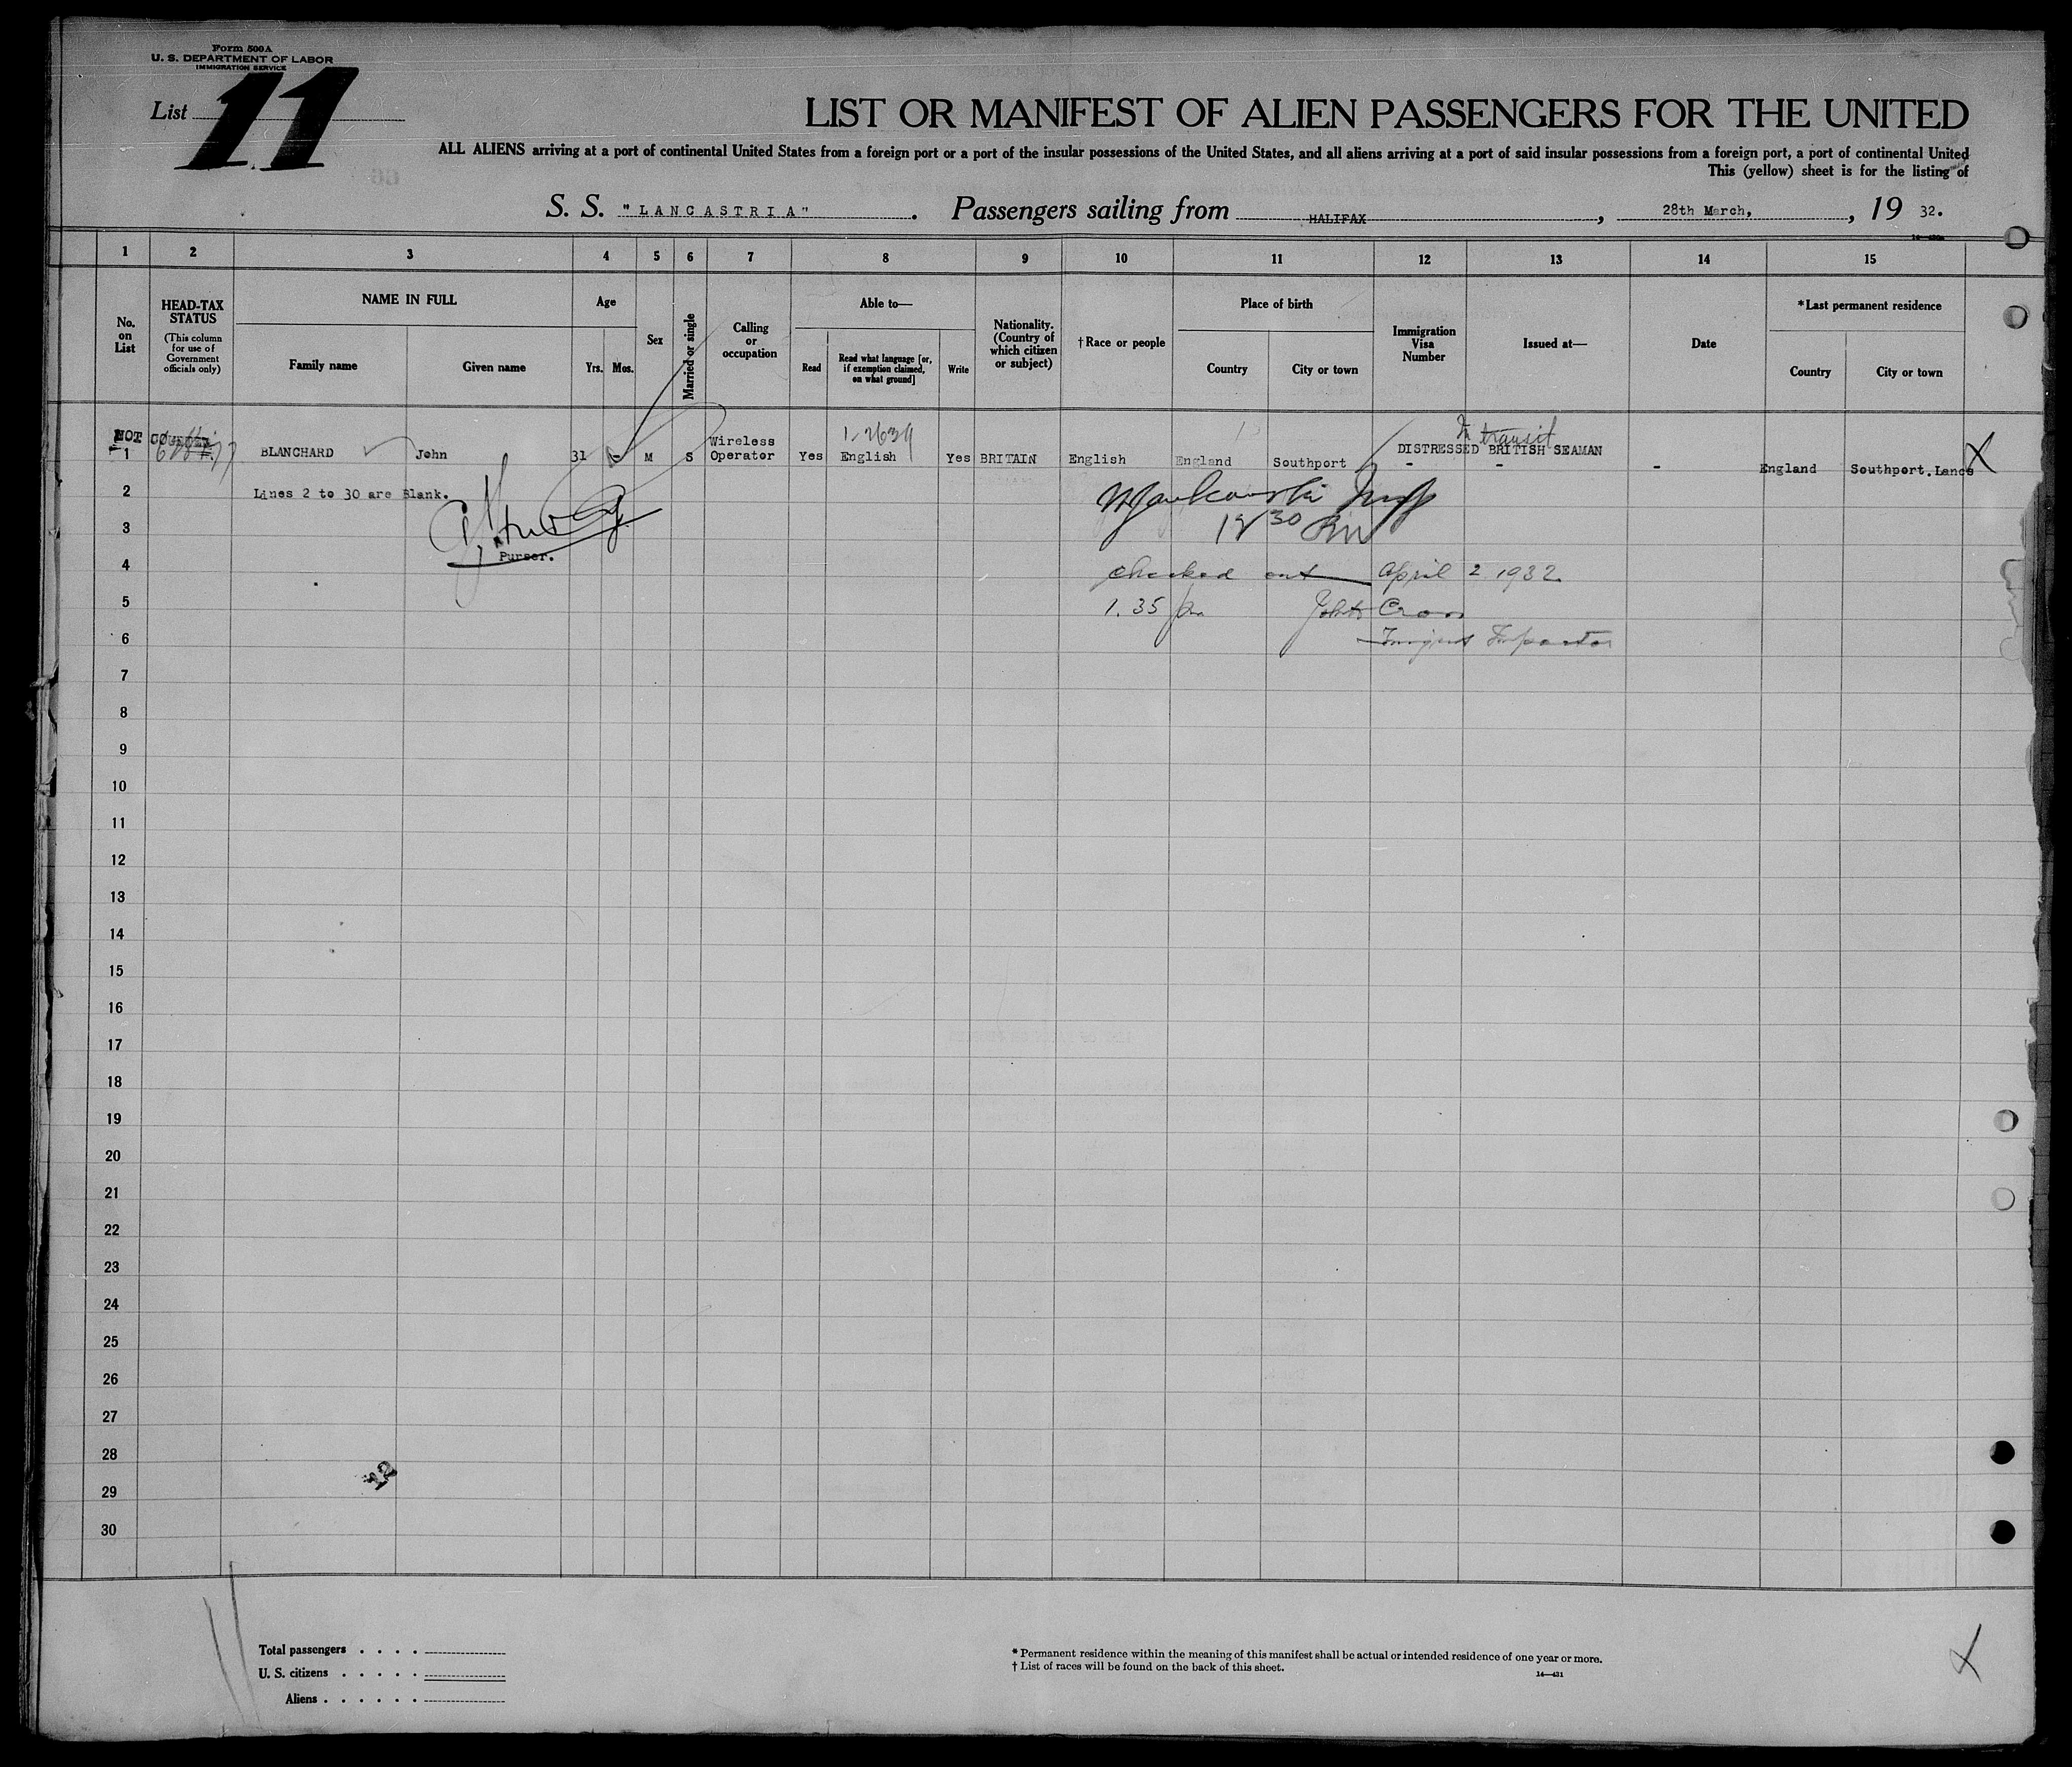 Form 500A
U. S. DEPARTMENT OF LABOR
IMMIGRATION SERVICE
List 11
LIST OR MANIFEST OF ALIEN PASSENGERS FOR THE UNITED
ALL ALIENS arriving at a port of continental United States from a foreign port or a port of the insular possessions of the United States, and all aliens arriving at a port of said insular possessions from a foreign port, a port of continental United
This (yellow) sheet is for the listing of
S. S. "LANCASTRIA". Passengers sailing from HALIFAX, 28th March, , 19 32.
1 2 3 4 5 6 7 8 9 10 11 12 13 14 15
No. on List
HEAD-TAX STATUS
(This column for use of Government officials only)
NAME IN FULL
Family name
Given name
Age
Yrs. Mos.
Sex
Married or single
Calling or occupation
Able to—
Read
Read what language [or, if exemption claimed, on what ground]
Write
Nationality. (Country of which citizen or subject)
†Race or people
Place of birth
Country
City or town
Immigration Visa Number
Issued at—
Date
*Last permanent residence
Country
City or town
In transit
NOT
1 BLANCHARD John 31 - M S Wireless Operator Yes English Yes BRITAIN English England Southport DISTRESSED BRITISH SEAMAN - - - England Southport.Lancs X
2 Lines 2 to 30 are Blank.
3
Purser.
4 checked out April 2 1932.
5 1.35 pm
6
7
8
9
10
11
12
13
14
15
16
17
18
19
20
21
22
23
24
25
26
27
28
29
30
Total passengers . . . .
U. S. citizens . . . . .
Aliens . . . . . .
* Permanent residence within the meaning of this manifest shall be actual or intended residence of one year or more.
† List of races will be found on the back of this sheet.
14—431
X